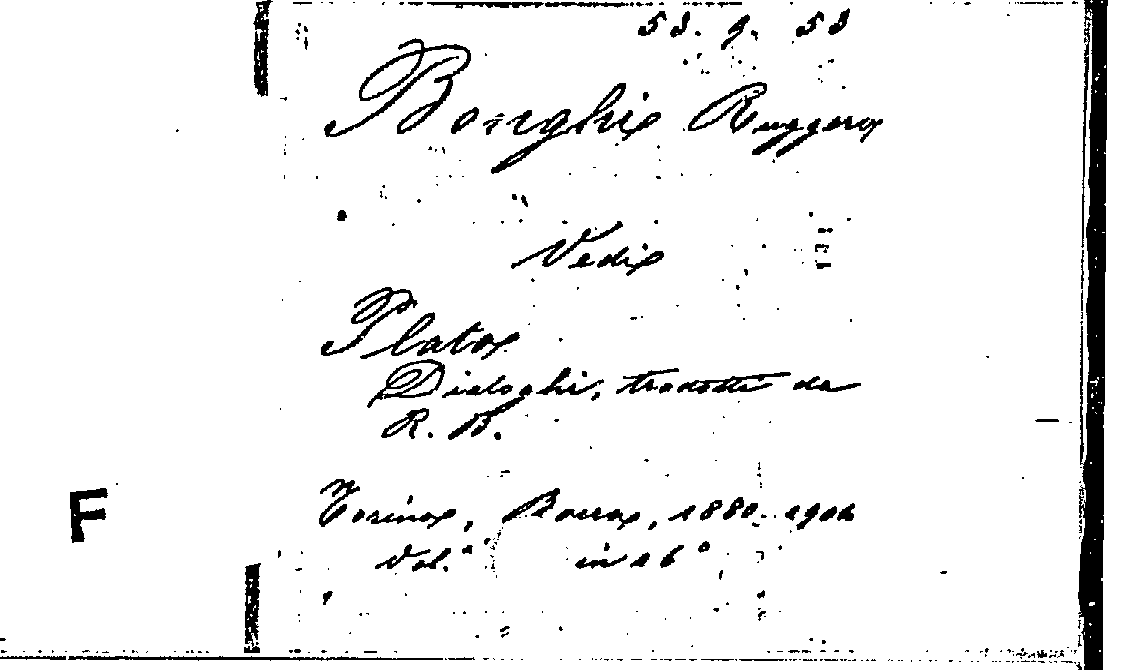 53. 9. 53
Bonghi Ruggero
Vedi
Plato
Dialoghi, tradotti da
R. B.
F
Torino, Bocca, 1880-1904
Vol. in 16°